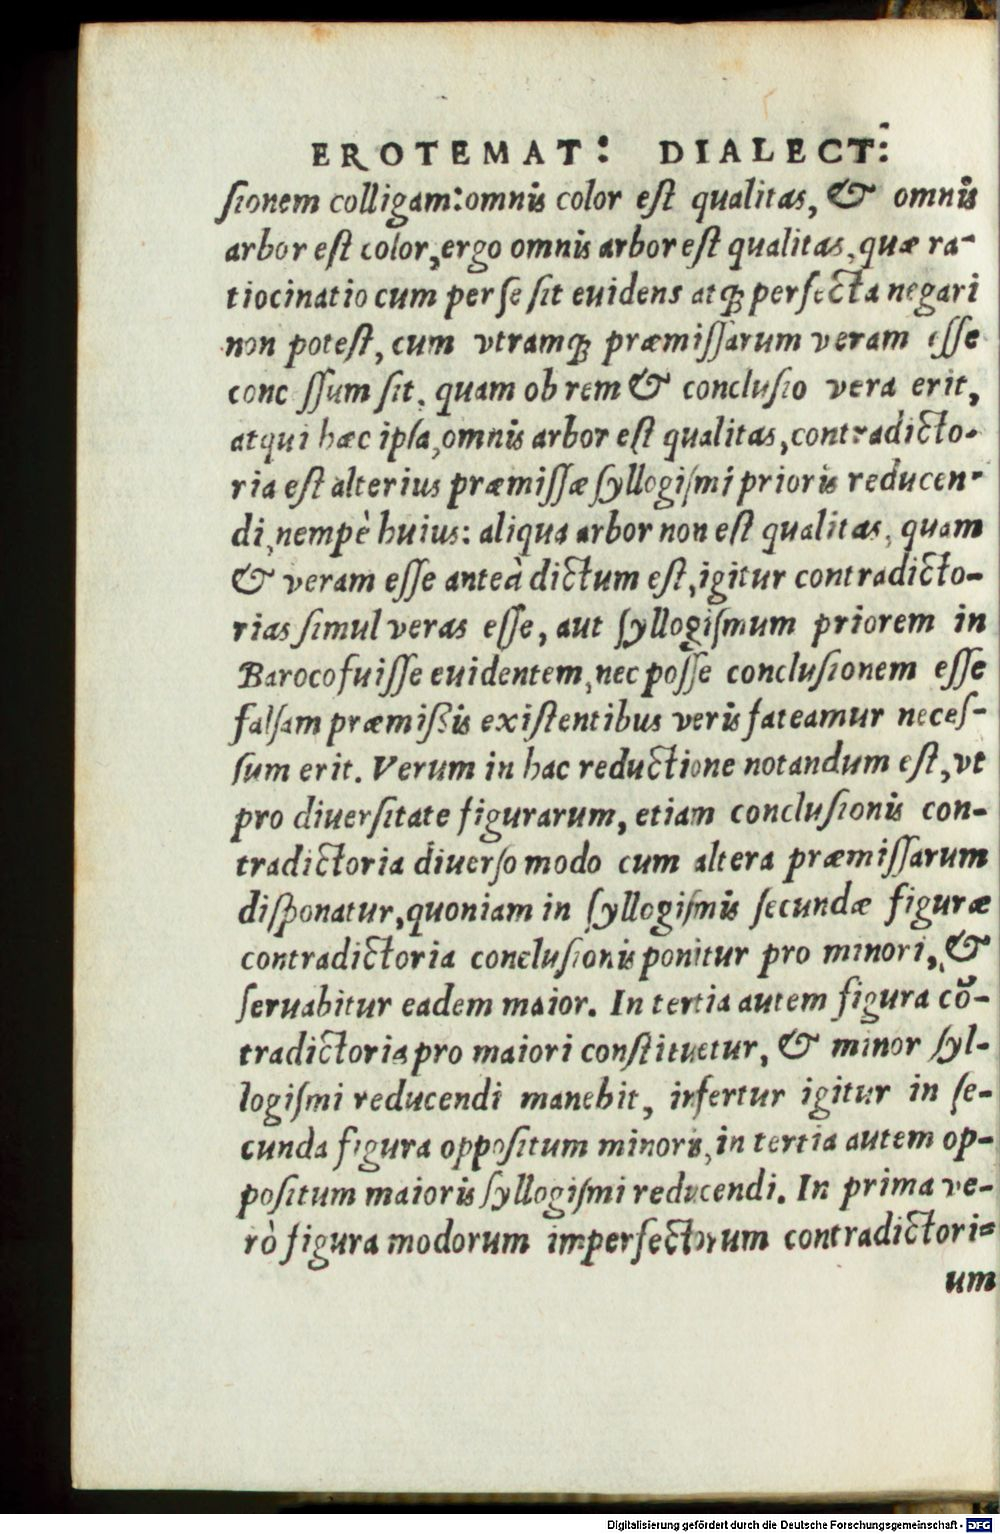 EROTEMAT: DIALECT:
ſionem colligam: omnis color eſt qualitas, & omnis
arbor eſt color, ergo omnis arbor eſt qualitas, quæ ra-
tiocinatio cum per ſe ſit euidens atq; perfecta negari
non poteſt, cum vtramq; præmiſſarum veram eſſe
conc ſſum ſit, quam ob rem & concluſio vera erit,
atqui hæc ipſa, omnis arbor eſt qualitas, contradicto-
ria eſt alterius præmiſſæ ſyllogiſmi prioris reducen-
di, nempè huius: aliqua arbor non eſt qualitas, quam
& veram eſſe anteà dictum eſt, igitur contradicto-
rias ſimul veras eſſe, aut ſyllogiſmum priorem in
Baroco fuiſſe euidentem, nec poſſe concluſionem eſſe
falſam præmißis exiſtentibus veris fateamur neceſ-
ſum erit. Verum in hac reductione notandum eſt, vt
pro diuerſitate figurarum, etiam concluſionis con-
tradictoria diuerſo modo cum altera præmiſſarum
diſponatur, quoniam in ſyllogiſmis ſecundæ figuræ
contradictoria concluſionis ponitur pro minori, &
ſeruabitur eadem maior. In tertia autem figura cõ-
tradictoria pro maiori conſtituetur, & minor ſyl-
logiſmi reducendi manebit, infertur igitur in ſe-
cunda figura oppoſitum minoris, in tertia autem op-
poſitum maioris ſyllogiſmi reducendi. In prima ve-
rò figura modorum imperfectorum contradictori-
um
Digitalisierung gefördert durch die Deutsche Forschungsgemeinschaft - DFG